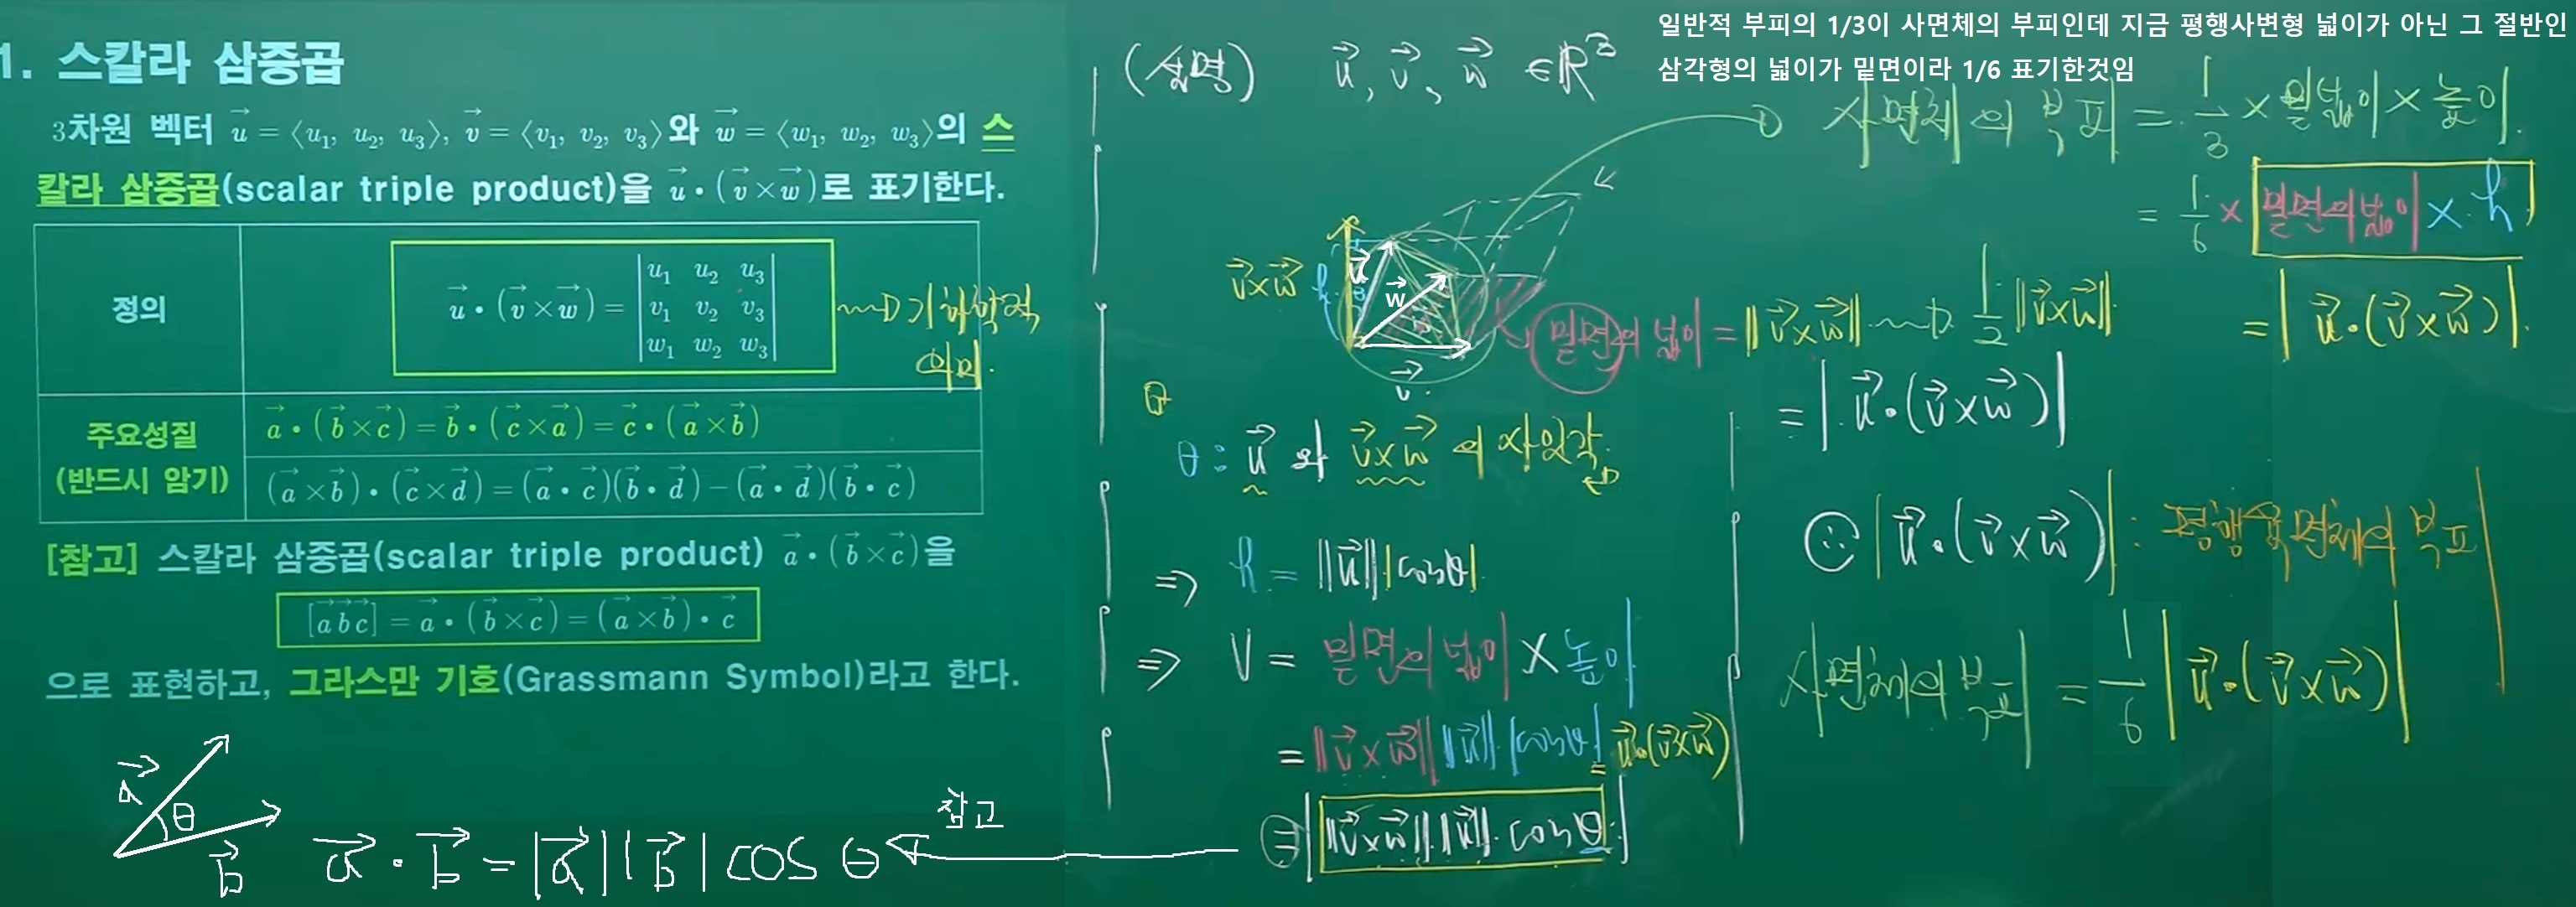 1. 스칼라 삼중곱
3차원 벡터 u⃗ = ⟨u₁, u₂, u₃⟩, v⃗ = ⟨v₁, v₂, v₃⟩와 w⃗ = ⟨w₁, w₂, w₃⟩의 스
칼라 삼중곱(scalar triple product)을 u⃗ • (v⃗ × w⃗)로 표기한다.
정의
u⃗ • (v⃗ × w⃗) =
| u₁ u₂ u₃ |
| v₁ v₂ v₃ |
| w₁ w₂ w₃ |
기하학적
의미.
주요성질
(반드시 암기)
a⃗ • (b⃗ × c⃗) = b⃗ • (c⃗ × a⃗) = c⃗ • (a⃗ × b⃗)
(a⃗ × b⃗) • (c⃗ × d⃗) = (a⃗ • c⃗)(b⃗ • d⃗) − (a⃗ • d⃗)(b⃗ • c⃗)
[참고] 스칼라 삼중곱(scalar triple product) a⃗ • (b⃗ × c⃗)을
[a⃗ b⃗ c⃗] = a⃗ • (b⃗ × c⃗) = (a⃗ × b⃗) • c⃗
으로 표현하고, 그라스만 기호(Grassmann Symbol)라고 한다.
a⃗
θ
b⃗
a⃗ · b⃗ = |a⃗| |b⃗| cos θ
참고
(설명) u⃗, v⃗, w⃗ ∈ ℝ³
v⃗×w⃗
h
u⃗
w⃗
v⃗
θ
밑면의 넓이 = ‖v⃗×w⃗‖ ⇝ 1/2 ‖v⃗×w⃗‖
θ : u⃗ 와 v⃗×w⃗ 의 사잇각
⇒ h = ‖u⃗‖ |cosθ|
⇒ V = 밑면의 넓이 × 높이
= ‖v⃗×w⃗‖ ‖u⃗‖ · |cosθ|
= u⃗·(v⃗×w⃗)
= | ‖v⃗×w⃗‖ ‖u⃗‖ · cosθ |
일반적 부피의 1/3이 사면체의 부피인데 지금 평행사변형 넓이가 아닌 그 절반인
삼각형의 넓이가 밑면이라 1/6 표기한것임
사면체의 부피 = 1/3 × 밑넓이 × 높이.
= 1/6 × 밑면의 넓이 × h
= | u⃗·(v⃗×w⃗) |.
= | u⃗·(v⃗×w⃗) |
∴ | u⃗·(v⃗×w⃗) | : 평행육면체의 부피
사면체의 부피 = 1/6 | u⃗·(v⃗×w⃗) |